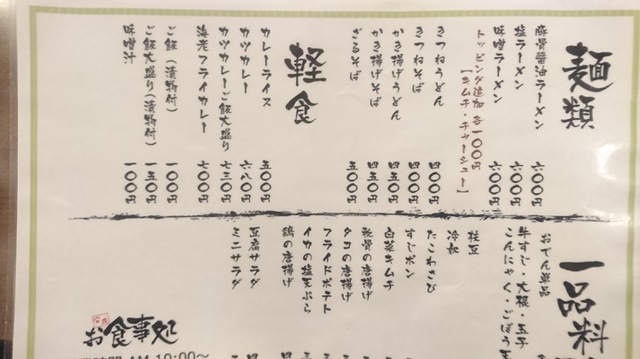 麺類
豚骨醤油ラーメン 六〇〇円
塩ラーメン 六〇〇円
味噌ラーメン 六〇〇円
トッピング追加 各一〇〇円
【キムチ・チャーシュー】
きつねうどん 四〇〇円
きつねそば 四〇〇円
かき揚げうどん 四五〇円
かき揚げそば 四五〇円
ざるそば 五〇〇円
軽食
カレーライス 五〇〇円
カツカレー 六八〇円
カツカレーご飯大盛り 七三〇円
海老フライカレー 七〇〇円
ご飯（漬物付） 一〇〇円
ご飯大盛り（漬物付） 一五〇円
味噌汁 一〇〇円
一品料
おでん単品
牛すじ・大根・玉子
こんにゃく・ごぼう
枝豆
冷奴
たこわさび
すじポン
白菜キムチ
軟骨の唐揚げ
タコの唐揚げ
フライドポテト
イカの塩天ぷら
鶏の唐揚げ
豆腐サラダ
ミニサラダ
お食事処
時間 AM 10:00～